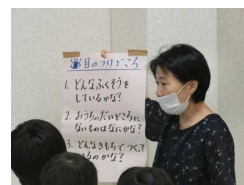 目のつけどころ
1. どんなふくそうを
しているかな?
2. おうちのだいどころに
ないものはなにかな?
3. どんなきもちで、つくって
いるのかな?